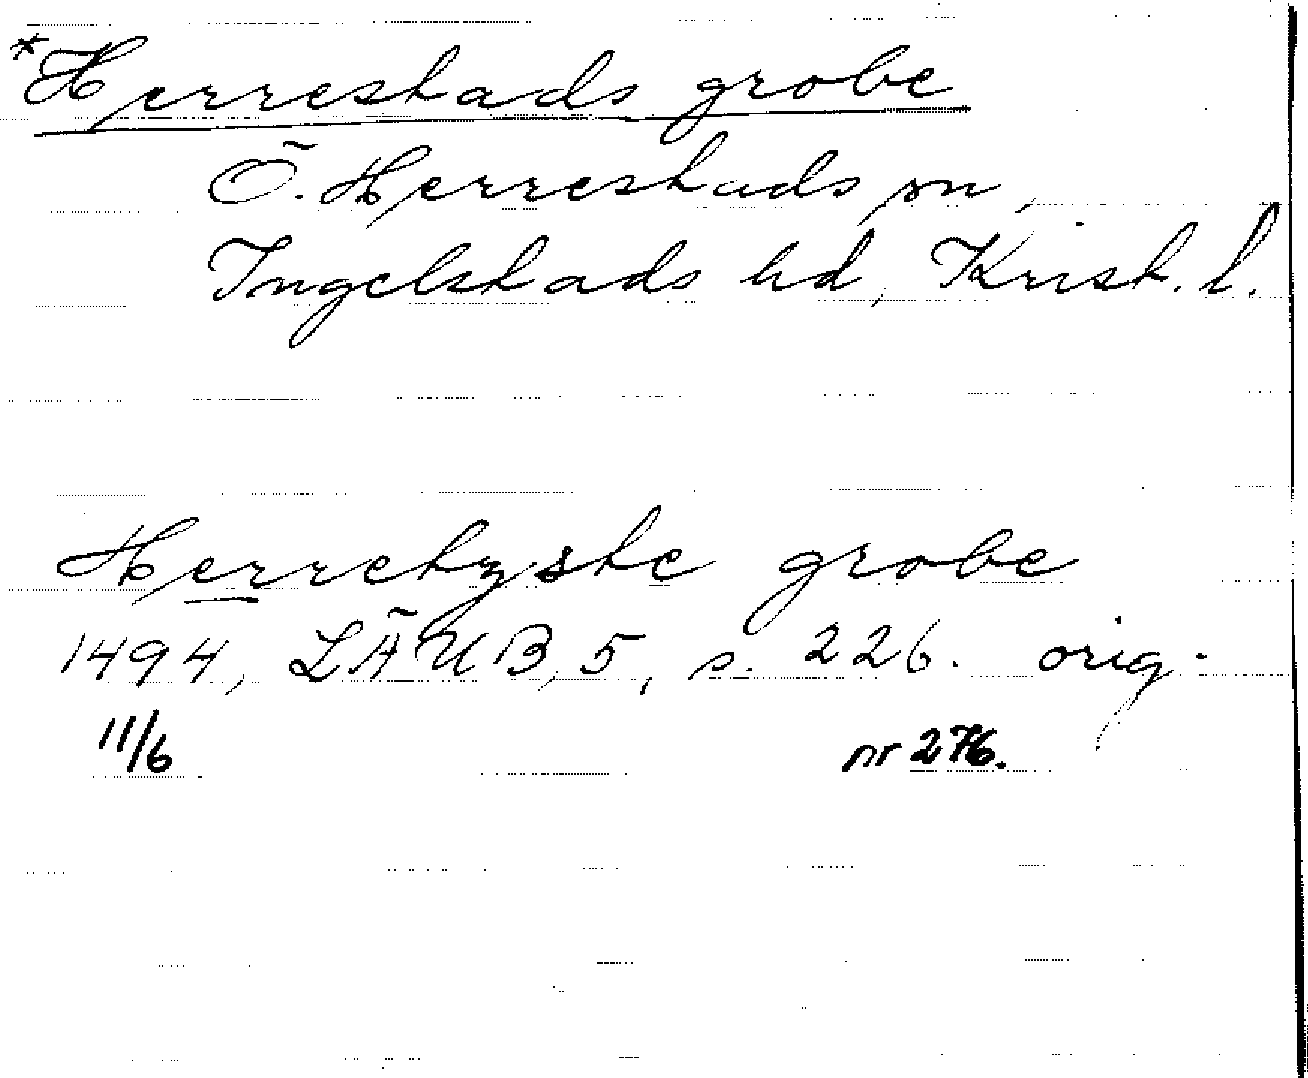 *Herrestads grobe
Ö. Herrestads sn,
Ingelstads hd, Krist. l.
Herretzste grobe
1494, LÄUB, 5, s. 226. orig.
11/6 nr 276.